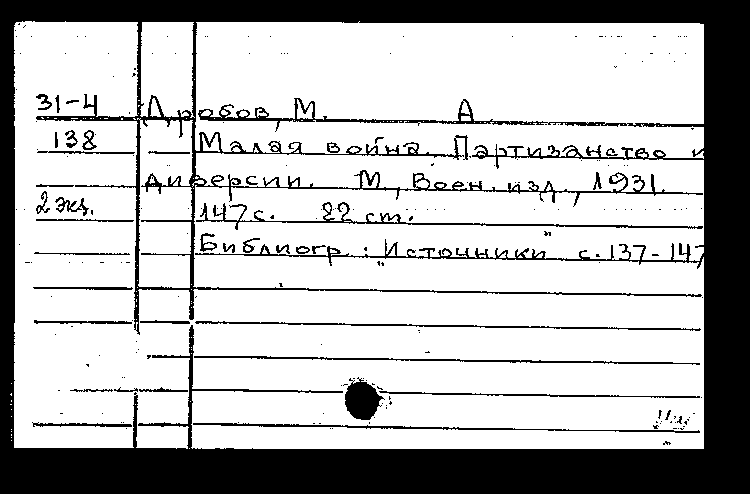 31-4 Дробов, М. А
138 Малая война. Партизанство и
диверсии. М, Воен. изд., 1931.
2 экз. 147 с. 22 см.
Библиогр.: "Источники" с. 137-147